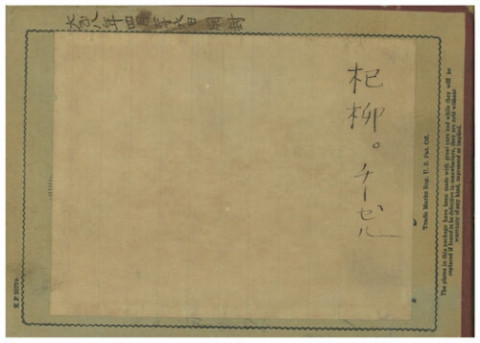 大正八年四月廿六日開封
杞柳。チーゼル
Trade Marks Reg. U. S. Pat. Off.
The plates in this package have been made with great care and while they will be
replaced if found to be defective in manufacture, they are sold without
warranty of any kind, expressed or implied.